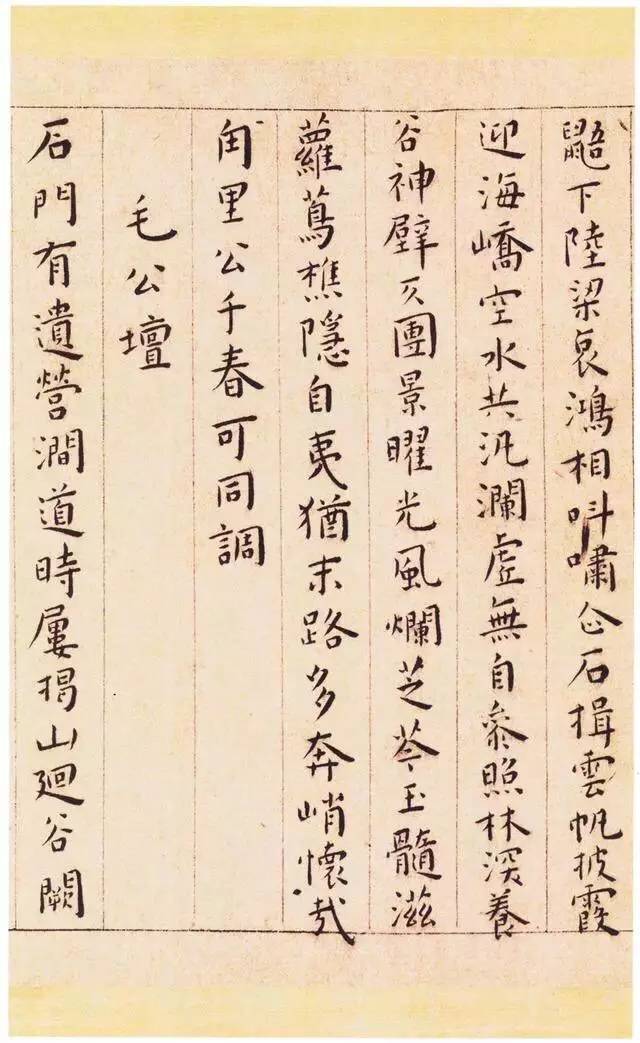 鼯下陸梁哀鴻相呌嘯仚石揖雲帆披霞
迎海嶠空水共汎瀾虛無自參照林深養
谷神壁仄團景曜光風爛芝苓玉髓滋
蘿蔦樵隱自夷猶末路多奔峭懷哉
甪里公千春可同調
毛公壇
石門有遺營澗道時屢揭山廻谷闕